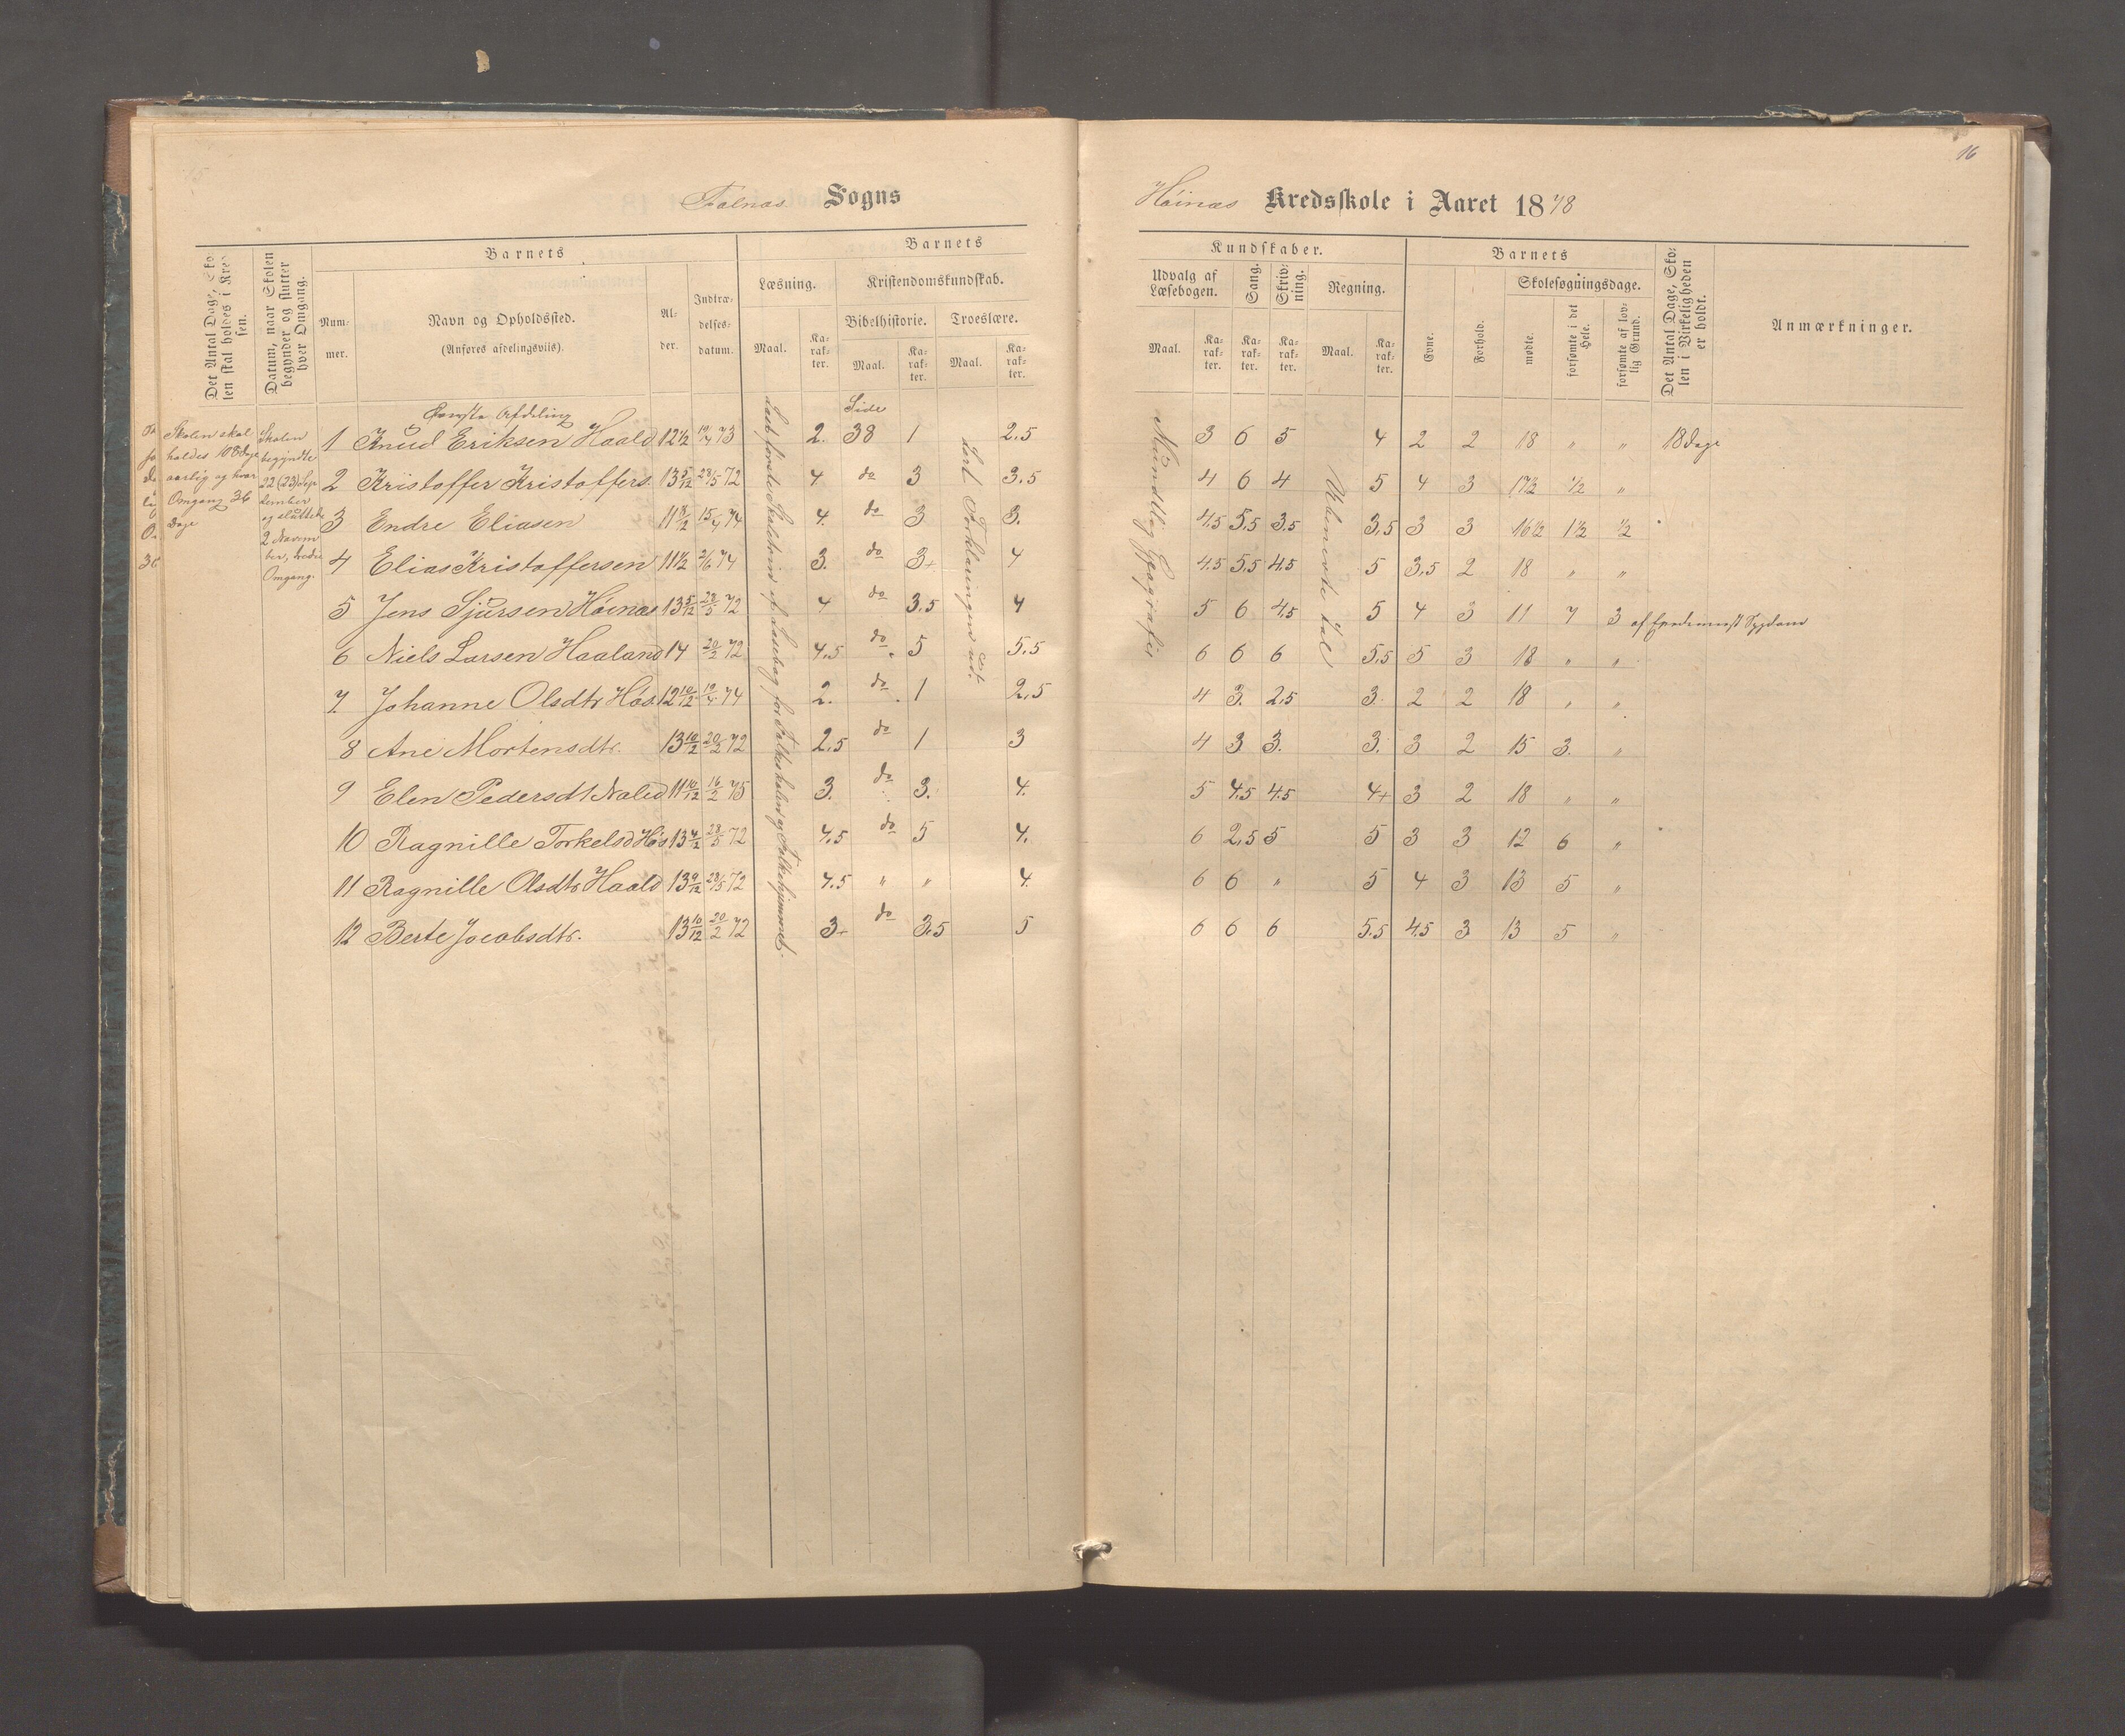 16
Falnæs Sogns
Høinæs Kredsskole i Aaret 1878
Det Antal Dage, Skolen skal holdes i Kredsen.
Datum, naar Skolen begynder og slutter hver Omgang.
Barnets
Nummer.
Navn og Opholdssted.
(Anføres afdelingsviis).
Alder.
Indtrædelsesdatum.
Barnets
Læsning.
Kristendomskundskab.
Bibelhistorie.
Troeslære.
Maal. Karakter. Maal. Karakter. Maal. Karakter.
Kundskaber.
Udvalg af Læsebogen.
Sang.
Skrivning.
Regning.
Maal. Karakter. Karakter. Karakter. Maal. Karakter.
Barnets
Evne.
Forhold.
Skolesøgningsdage.
mødte.
forsømte i det Hele.
forsømte af lovlig Grund.
Det Antal Dage, Skolen i Virkeligheden er holdt.
Anmærkninger.
Skolen skal
holdes 108 Dage
aarlig og hver
Omgang 36
Dage
Skolen
begyndte
22 (23) Sep
tember
og sluttede
2 Novem
ber, hele
Omgang.
Øverste Afdeling
Side
Læst første Skoletrin af Læsebog for Folkeskolen og Folkehjemmet.
Lært Forklaringen ud.
Mundtlig Geografi
Ubenævnte Tal
1 Knud Eriksen Haald 12 1/2 19/4 73 2. 38 1 2.5 3 6 5 4 2 2 18 " " 18 Dage
2 Kristoffer Kristoffers. 13 5/12 28/5 72 4 do 3 3.5 4 6 4 5 4 3 17 1/2 1/2 "
3 Endre Eliasen 11 8/12 15/4 74 4. do 3 3. 4.5 5.5 3.5 3.5 3 3 16 1/2 1 1/2 1/2
4 Elias Kristoffersen 11 1/2 2/6 74 3. do 3+ 4 4.5 5.5 4.5 5 3.5 2 18 " "
5 Jens Sjursen Høinæs 13 5/12 28/5 72 4. do 3.5 4 5 6 4.5 5 4 3 11 7 3 af Sygdom
6 Niels Larsen Haaland 14 20/2 72 4.5 do. 5 5.5 6 6 6 5.5 5 3 18 " "
7. Johanne Olsdtr Høs. 12 10/12 19/4 74 2. do. 1 2.5 4 3. 2.5 3. 2 2 18 " "
8 Ane Mortensdtr. 13 10/12 20/2 72 2.5 do 1 3 4 3 3. 3. 3 2 15 3. "
9 Elen Pedersdt Naled 11 10/12 16/2 75 3. do 3. 4. 5 4.5 4.5 4+ 3 2 18 " "
10 Ragnille Torkelsd Høs 13 4/12 28/5 72 4.5 do 5 4. 6 2.5 5 5 3 3 12 6 "
11 Ragnille Olsdtr Haald 13 9/12 28/5 72 4.5 " " 4. 6 6 " 5 4 3 13 5 "
12 Berte Jacobsdtr. 13 10/12 20/2 72 3+ do 3.5 5 6 6 6 5.5 4.5 3 13 5 "